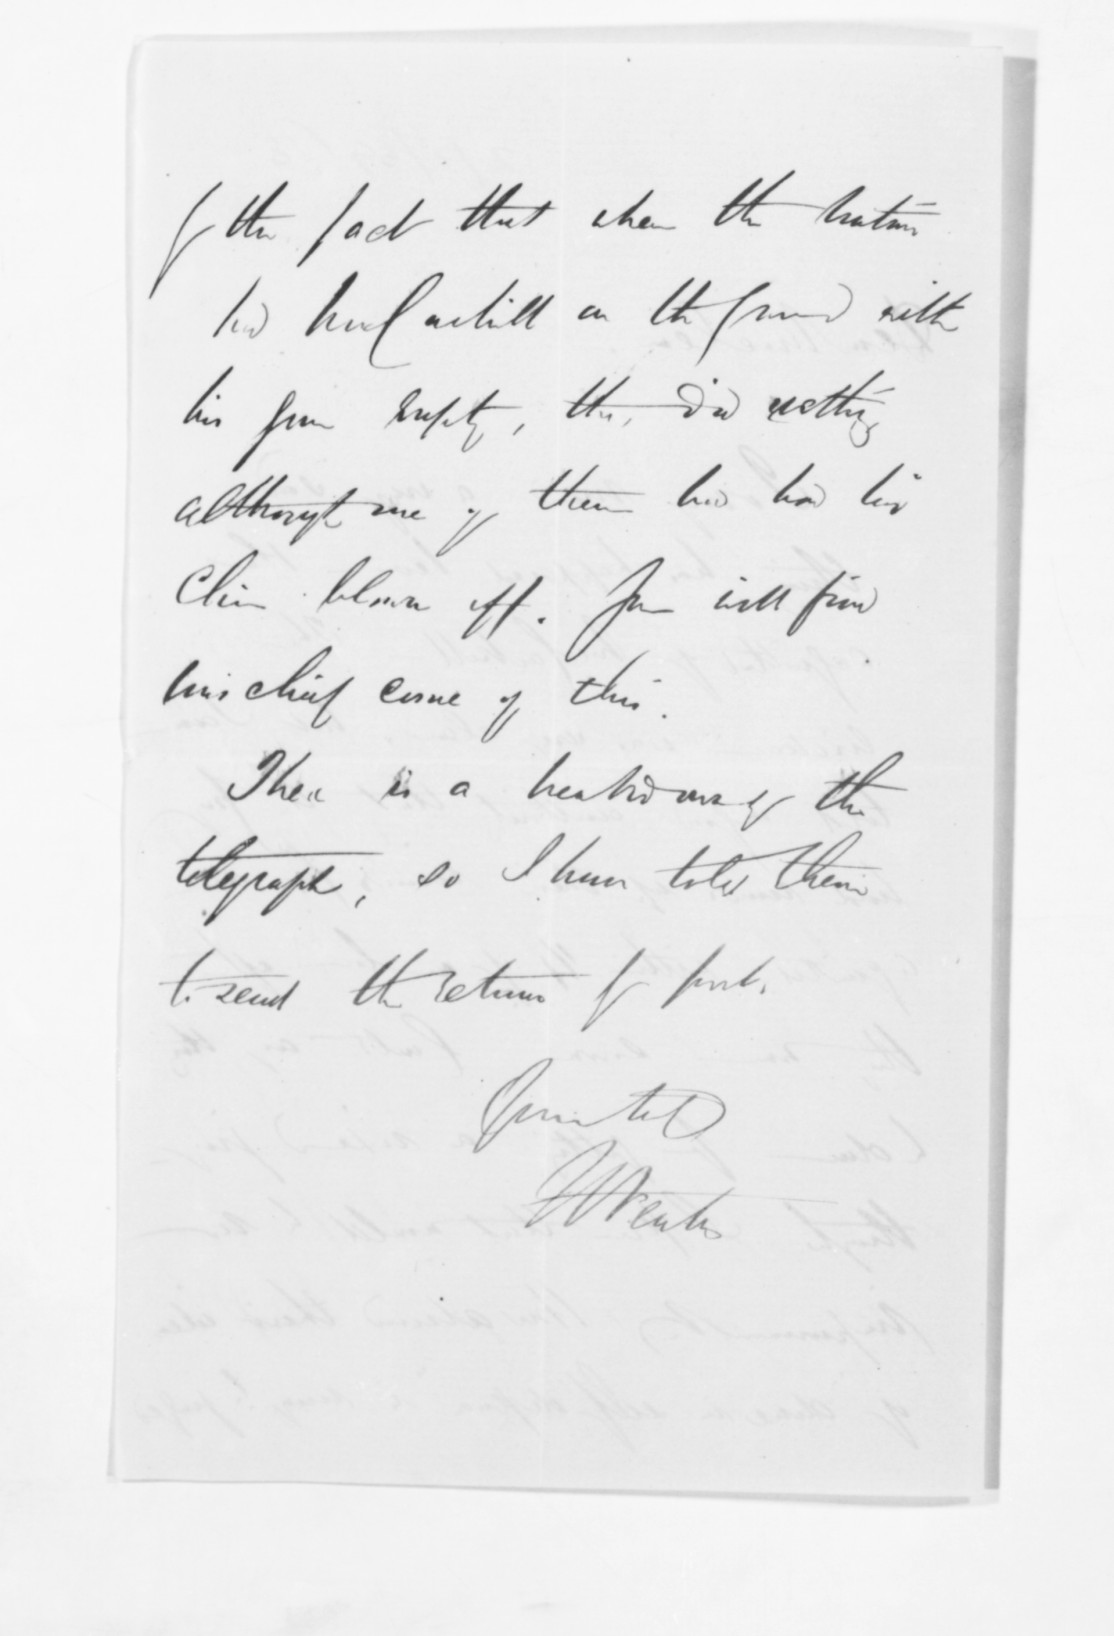 of the fact that when the natives
had McCaskill on the ground with
his gun empty, they did nothing
although one of them had had his
chin blown off. You will find
mischief come of this.
There is a breakdown of the
telegraph, so I have told them
to send the return by post.
Yours tly